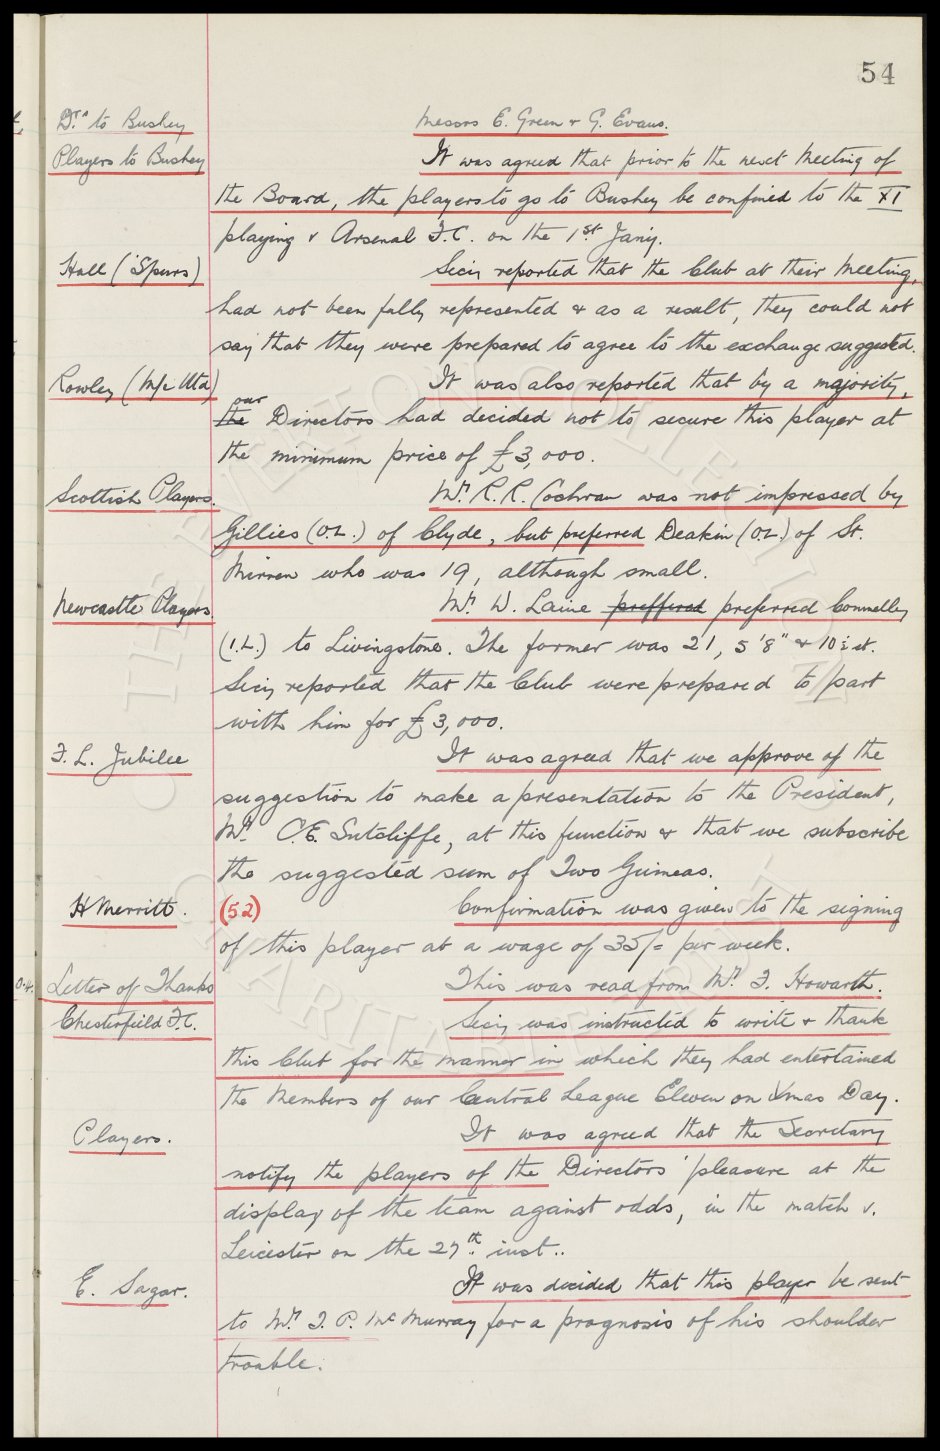 54
Drs. to Bushey Messrs E. Green & G. Evans.
Players to Bushey It was agreed that prior to the next Meeting of
the Board, the players to go to Bushey be confined to the XI
playing v Arsenal F.C. on the 1st Jan'y.
Hall (Spurs) Secy reported that the Club at their Meeting,
had not been fully represented & as a result, they could not
say that they were prepared to agree to the exchange suggested.
Rowley (M/c Utd) It was also reported that by a majority,
our
the Directors had decided not to secure this player at
the minimum price of £3,000.
Scottish Players. Mr. R.R. Cochran was not impressed by
Gillies (O.L.) of Clyde, but preferred Deakin (O.L.) of St.
Mirren who was 19, although small.
Newcastle Players. Mr. W. Laine preffered preferred Connelley
(I.L.) to Livingstone. The former was 21, 5'8" & 10½ st.
Secy reported that the Club were prepared to part
with him for £3,000.
F.L. Jubilee It was agreed that we approve of the
suggestion to make a presentation to the President,
Mr. C.E. Sutcliffe, at this function & that we subscribe
the suggested sum of Two Guineas.
H Merritt. (52) Confirmation was given to the signing
of this player at a wage of 35/= per week.
Letter of Thanks This was read from Mr. F. Howarth.
Chesterfield F.C. Secy was instructed to write & thank
this Club for the manner in which they had entertained
the Members of our Central League Eleven on Xmas Day.
Players. It was agreed that the Secretary
notify the players of the Directors' pleasure at the
display of the team against odds, in the match v.
Leicester on the 27th. inst..
E. Sagar. It was decided that this player be sent
to Mr. T.P. McMurray for a prognosis of his shoulder
trouble.
THE EVERTON COLLECTION
CHARITABLE TRUST